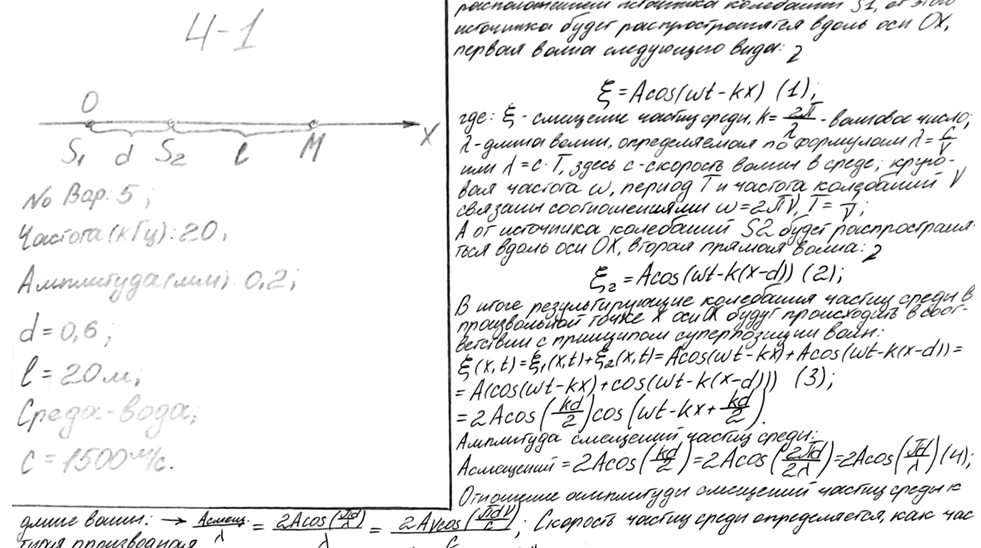 4-1
O
S1 d S2 l M X
No Вар: 5;
Частота (кГц): 20,
Амплитуда (мм): 0,2;
d = 0,6;
l = 20 м;
Среда - вода;
c = 1500 м/с.
расположением источника колебаний S1, от этого
источника будет распространятся вдоль оси OX,
первая волна следующего вида:
ξ = Acos(ωt - kx) (1);
где: ξ - смещение частиц среды, k = 2π/λ - волновое число;
λ - длина волны, определяемая по формулам λ = c/ν
или λ = c · T, здесь c - скорость волны в среде; круго-
вая частота ω, период T и частота колебаний ν
связаны соотношениями ω = 2πν, T = 1/ν;
А от источника колебаний S2 будет распространя-
ться вдоль оси OX, вторая прямая волна:
ξ2 = Acos(ωt - k(x-d)) (2);
В итоге результирующие колебания частиц среды в
произвольной точке X оси X будут происходить в соот-
ветствии с принципом суперпозиции волн:
ξ(x,t) = ξ1(x,t) + ξ2(x,t) = Acos(ωt - kx) + Acos(ωt - k(x-d)) =
= A(cos(ωt - kx) + cos(ωt - k(x-d))) (3);
= 2Acos(kd/2)cos(ωt - kx + kd/2).
Амплитуда смещений частиц среды:
Aсмещений = 2Acos(kd/2) = 2Acos(2πd/2λ) = 2Acos(πd/λ) (4);
Отношение амплитуды смещений частиц среды к
длине волны: → Aсмещ/λ = 2Acos(πd/λ)/λ = 2Aνcos(πdν/c)/c; Скорость частиц среды определяется, как час
производная